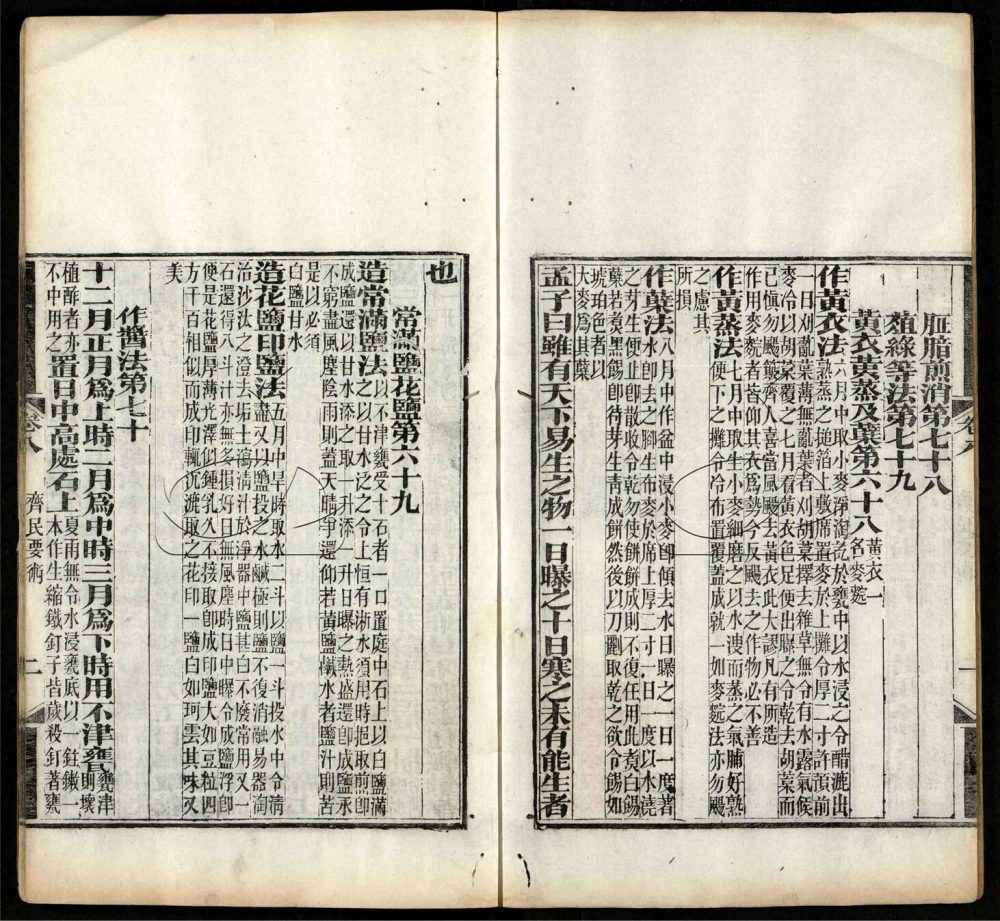 脏腤煎消第七十八
菹綠等法第七十九
黃衣黃蒸及糵第六十八黃衣一
名麥䴷
作黃衣法六月中取小麥淨淘訖於甕中以水浸之令醋漉出
熟蒸之搥箔上敷席置麥於上攤令厚二寸許預前
一日刈薍葉薄無薍葉者刈胡葈擇去雜草無令有水露氣候
麥冷以胡葈覆之七月看黃衣色足便出曝之令乾去胡葈而
已慎勿颺簸齊人喜當風颺去黃衣此大謬凡有所造
作用麥䴷者皆仰其衣爲勢今反颺去之作物必不善
作黃蒸法七月中取生小麥細磨之以水溲而蒸之氣脯好熟
便下之攤令冷布置覆蓋成就一如麥䴷法亦勿颺
之慮其
所損
作糵法八月中作盆中浸小麥卽傾去水日曝之一日一度著
水卽去之脚生布麥於席上厚二寸一日一度以水澆
之芽生便止卽散收令乾勿使餅餅成則不復任用此煮白餳
糵若煮黑餳卽待芽生青成餅然後以刀取乾之欲令餳如
琥珀色者以
大麥爲其糵
孟子曰雖有天下易生之物一日曝之十日寒之未有能生者
也
常滿鹽花鹽第六十九
造常滿鹽法以不津甕受十石者一口置庭中石上以白鹽滿
之以甘水沃之令上恒有淅水須用時挹取煎卽
成鹽還以甘水添之取一升添一升日曝之熱盛還卽成鹽永
不窮盡風塵陰雨則蓋天晴淨還仰若黃鹽鹹水者鹽汁則苦
是以必須
白鹽甘水
造花鹽印鹽法五月中旱時取水二斗以鹽一斗投水中令淸
盡又以鹽投之水鹹極則鹽不復消融易器淘
治沙汰之澄去垢土瀉淸汁於淨器中鹽甚白不廢常用又一
石還得八斗汁亦無多損好日無風塵時日中曝令成鹽浮卽
便是花鹽厚薄光澤似鍾乳久不接取卽成印鹽大如豆粒四
方千百相似而成印輒沉漉取之花印一鹽白如珂雪其味又
美
作醬法第七十
十二月正月爲上時二月爲中時三月爲下時用不津甕甕津
則壞
醬
植酢者亦
不中用之置日中高處石上夏雨無令水浸甕底以一鉎鏉一
本作生縮鐵釘子皆歲殺釘著甕
卷八
齊民要術
二